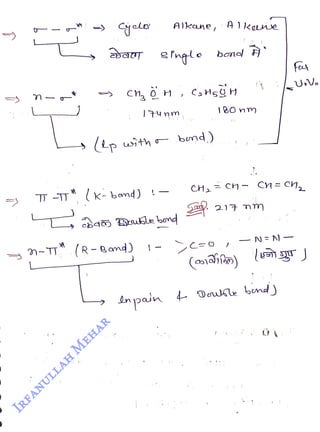 ⇒ σ — σ* → Cyclo Alkane, Alkane
→ केवल single bond में
Far U.V.
⇒ n — σ* ⇒ CH3 ÖH, C2H5ÖH
174nm 180nm
→ (lp with σ bond)
⇒ π - π* (K-bond) :- CH2 = CH - CH = CH2
→ केवल Double bond 217 nm
⇒ n-π* (R-Band) :- >C=O, —N=N—
(कार्बोनिल) (एजो ग्रुप)
→ lnpain & Double bond)
IRFANULLAH MEHAR